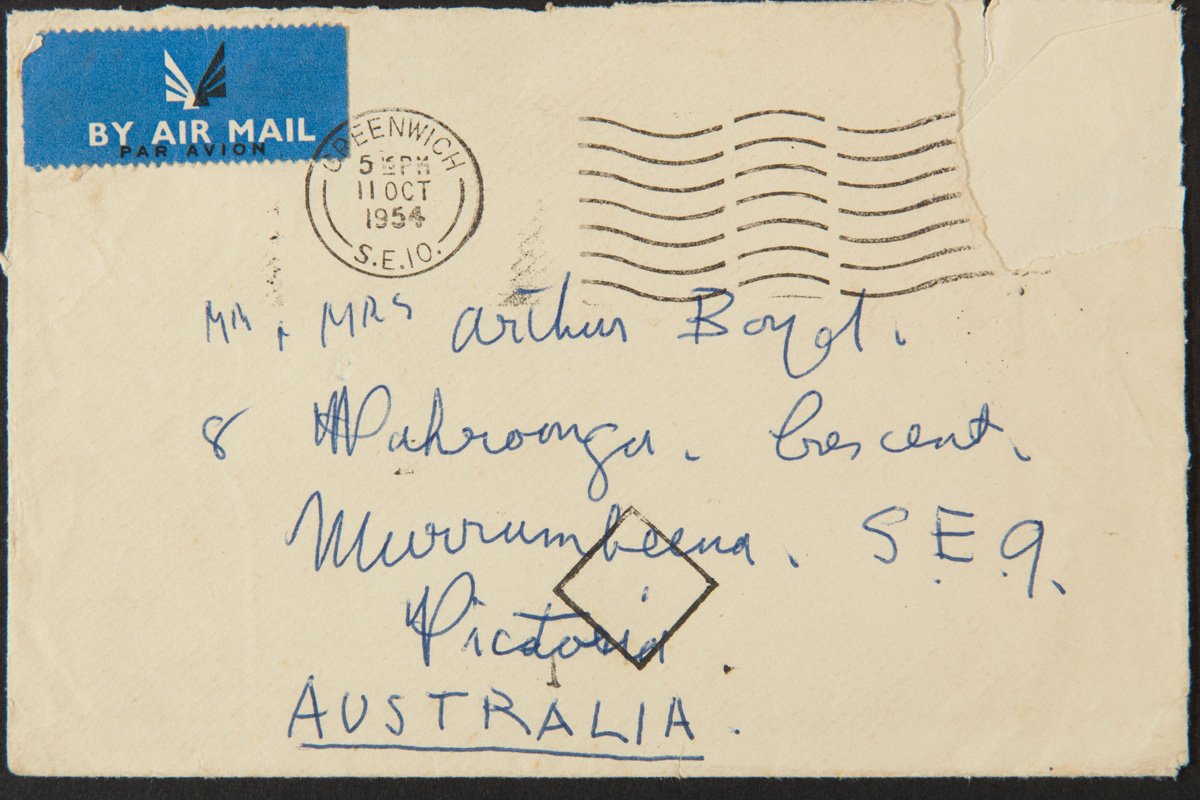 BY AIR MAIL
PAR AVION
GREENWICH
5 15 PM
11 OCT
1954
S.E.10.
Mr. & MRS Arthur Boyd.
8 Wahroonga. Crescent.
Murrumbeena. S.E.9.
Victoria
AUSTRALIA.